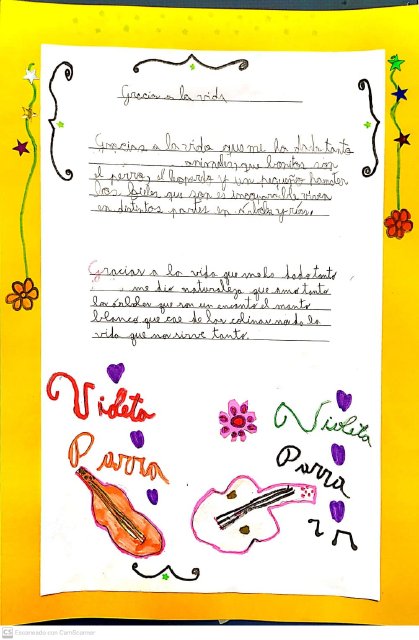 Gracia a la vida
Gracias a la vida que me ha dado tanto
animales que bonitos son
el perro, el leopardo y un pequeño hamster
los que son es incomparable viven
en distintos partes en y ríen.
Gracias a la vida que me ha dado tanto
me dio naturaleza que amo tanto
los árboles que son un encanto el manto
blanco que cae de las colinas no da la
vida que no sirve tanto.
Violeta
Parra
Violeta
Parra
CS Escaneado con CamScanner